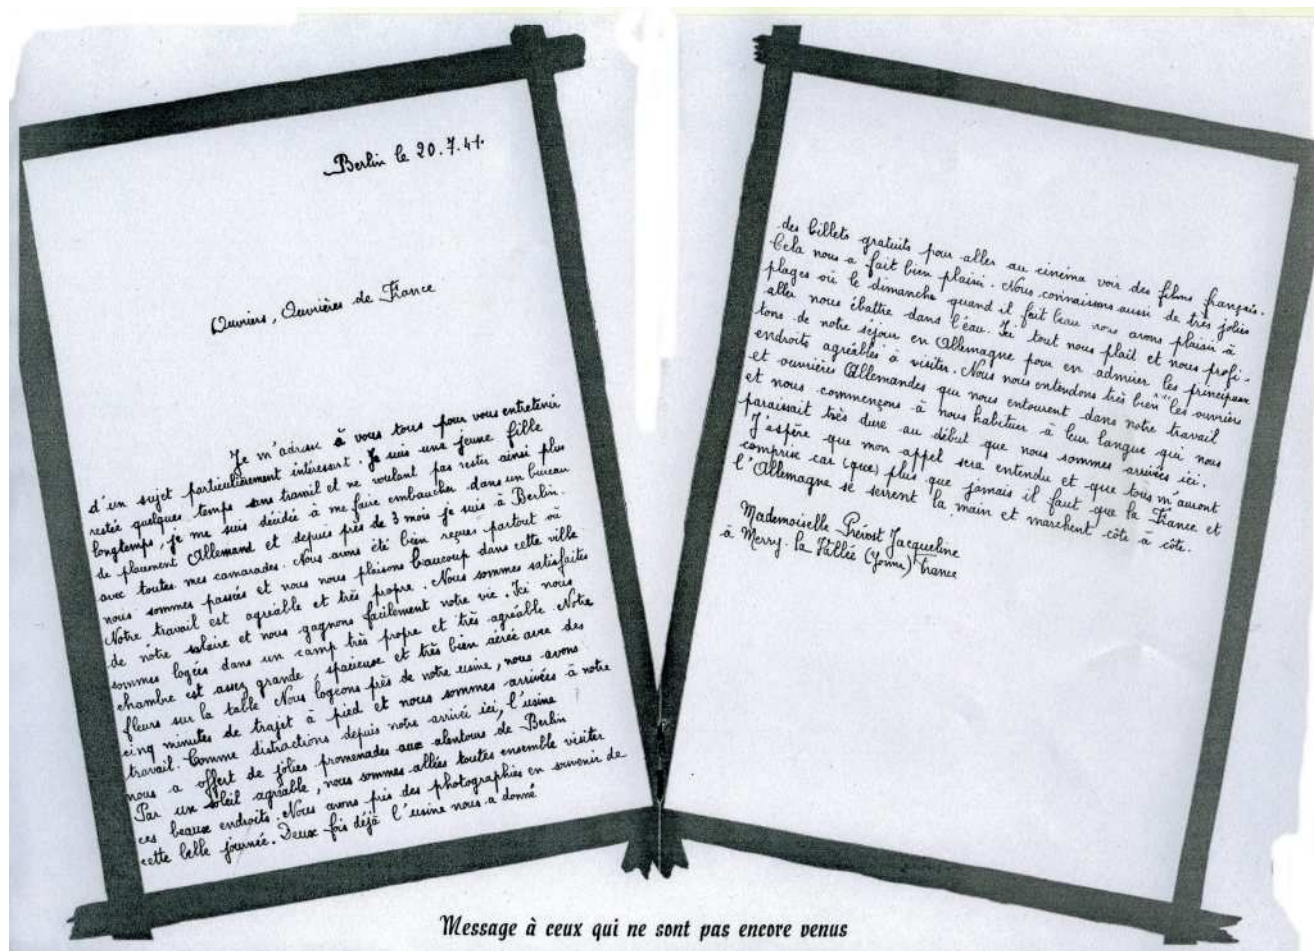 Berlin le 20.7.41.
Ouvriers, Ouvrières de France
Je m'adresse à vous tous pour vous entretenir
d'un sujet particulièrement intéressant. Je suis une jeune fille
restée quelques temps sans travail et ne voulant pas rester ainsi plus
longtemps, je me suis décidée à me faire embaucher dans un bureau
de placement Allemand et depuis près de 3 mois je suis à Berlin.
avec toutes mes camarades. Nous avons été bien reçues partout où
nous sommes passées et nous nous plaisons beaucoup dans cette ville
Notre travail est agréable et très propre. Nous sommes satisfaites
de nôtre salaire et nous gagnons facilement notre vie. Ici nous
sommes logées dans un camp très propre et très agréable. Notre
chambre est assez grande, spacieuse et très bien aérée avec des
fleurs sur la table. Nous logeons près de notre usine, nous avons
cinq minutes de trajet à pied et nous sommes arrivées à notre
travail. Comme distractions depuis notre arrivé ici, l'usine
nous a offert de jolies promenades aux alentours de Berlin
Par un soleil agréable, nous sommes allées toutes ensemble visiter
ces beaux endroits. Nous avons pris des photographies en souvenir de
cette belle journée. Deux fois déjà l'usine nous a donné
des billets gratuits pour aller au cinéma voir des films français.
Cela nous a fait bien plaisir. Nous connaissons aussi de très jolies
plages où le dimanche quand il fait beau nous avons plaisir à
aller nous ébattre dans l'eau. Ici tout nous plait et nous profi-
tons de notre séjour en Allemagne pour en admirer les principaux
endroits agréables à visiter. Nous nous entendons très bien avec les ouvriers
et ouvrières Allemandes que nous entourent dans notre travail
et nous commençons à nous habituer à leur langue qui nous
paraissait très dure au début que nous sommes arrivées ici.
J'espère que mon appel sera entendu et que tous m'auront
comprise car (que) plus que jamais il faut que la France et
l'Allemagne se serrent la main et marchent côte à côte.
Mademoiselle Prévost Jacqueline
à Merry-la Vallée (Yonne) France
Message à ceux qui ne sont pas encore venus